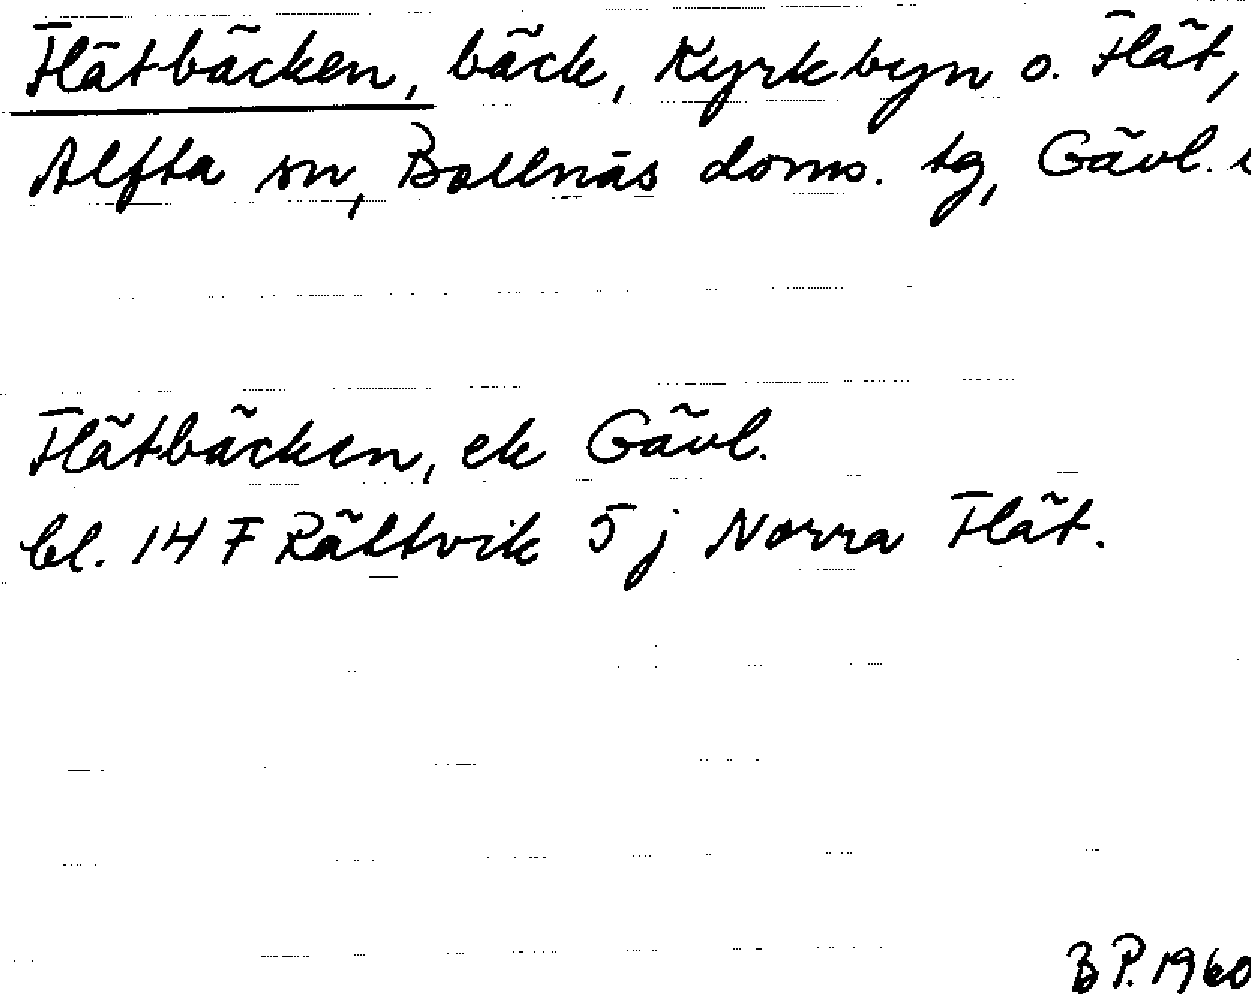 Flätbäcken, bäck, Kyrkbyn o. Flät,
Alfta sn, Bollnäs doms. tg, Gävl.
Flätbäcken, ek Gävl.
bl. 14 F Rättvik 5 j Norra Flät.
BP. 1960